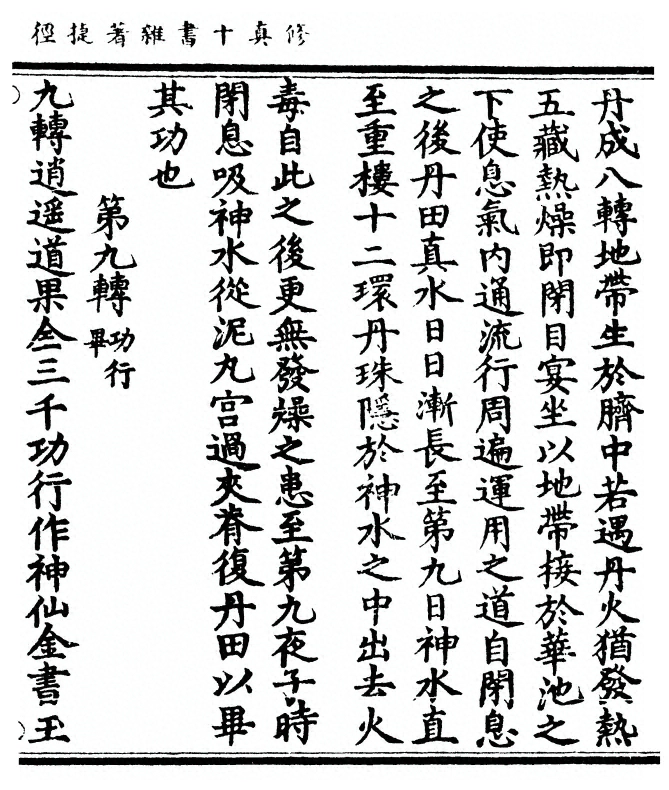 修真十書雜著捷徑
丹成八轉地帶生於臍中若遇丹火猶發熱
五藏熱燥即閉目宴坐以地帶接於華池之
下使息氣内通流行周遍運用之道自閉息
之後丹田真水日日漸長至第九日神水直
至重樓十二環丹珠隱於神水之中出去火
毒自此之後更無發燥之患至第九夜子時
閉息吸神水從泥丸宫過夾脊復丹田以畢
其功也
第九轉功行畢
九轉逍遥道果全三千功行作神仙金書玉